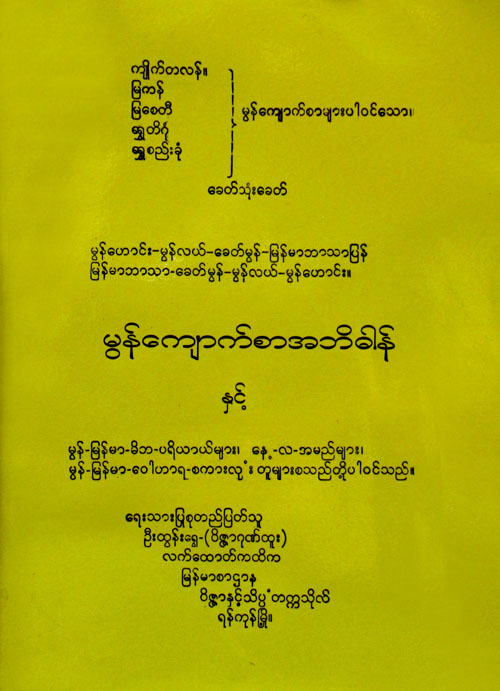 ကျိုက်တလန်။
မြကန်
မြစေတီ
ရွှေတိဂုံ
ရွှေစည်းခုံ
မွန်ကျောက်စာများပါဝင်သော၊
ခေတ်သုံးခေတ်
မွန်ဟောင်း–မွန်လယ်–ခေတ်မွန်–မြန်မာဘာသာပြန်
မြန်မာဘာသာ-ခေတ်မွန်–မွန်လယ်–မွန်ဟောင်း။
မွန်ကျောက်စာအဘိဓါန်
နှင့်
မွန်-မြန်မာ-မိဘ-ပရိယာယ်များ၊ နေ့-လ-အမည်များ၊
မွန်-မြန်မာ-ဝေါဟာရ-စကားလုံး တူများစသည်တို့ပါဝင်သည်။
ရေးသားပြုစုတည်ပြတ်သူ
ဦးထွန်းရွှေ-(ဝိဇ္ဇာဂုဏ်ထူး)
လက်ထောက်ကထိက
မြန်မာစာဌာန
ဝိဇ္ဇာနှင့်သိပ္ပံတက္ကသိုလ်
ရန်ကုန်မြို့။